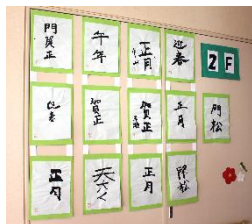 門賀正
午年
正月
迎春
2F
迎春
賀正
賀正
正月
門松
正月
正月
門松